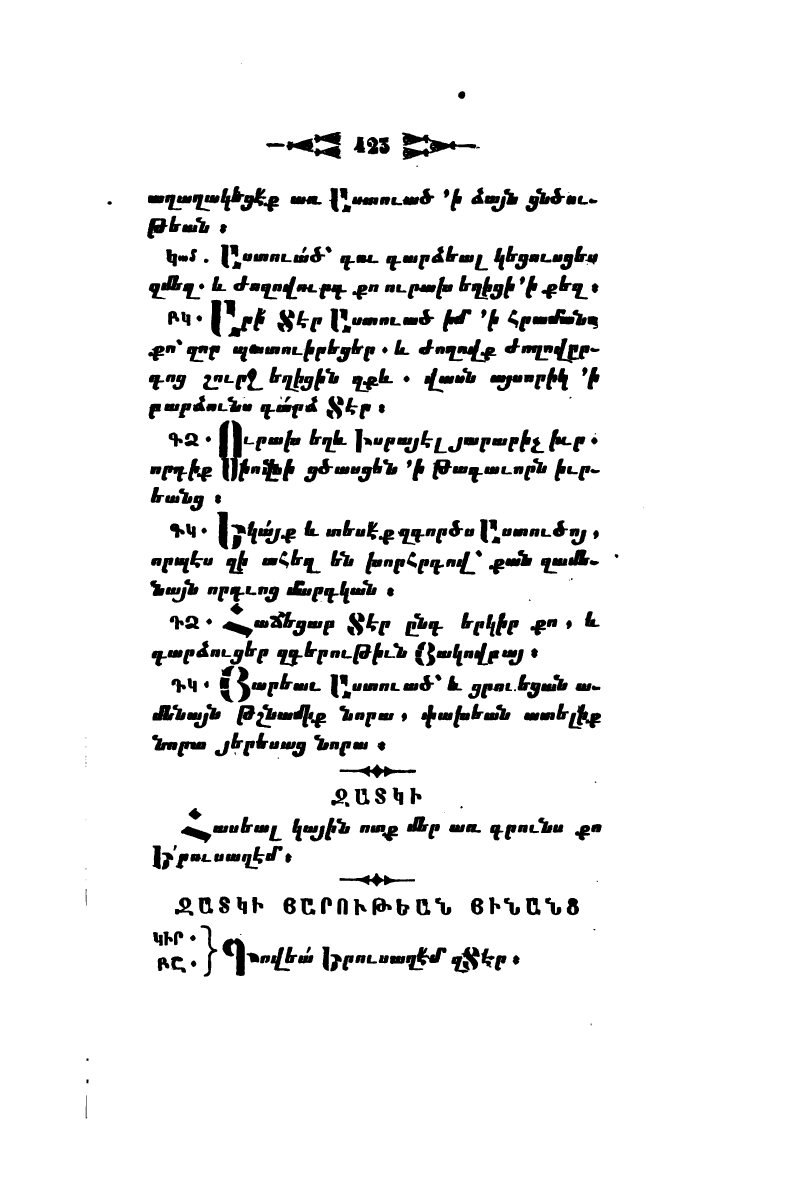 423
աղաղակեցէ՛ք առ Աստուած ՚ի ձայն ցնծու-
թեան ։
կամ . Աստուա՛ծ՝ դու դարձեալ կեցուսցես
զմեզ . և ժողովուրդ քո ուրախ եղիցի ՚ի քեզ ։
ԲԿ . Արի՛ Տէր Աստուած իմ ՚ի հրամանս
քո՝ զոր պատուիրեցեր . և ժողովք ժողովըր-
դոց շուրջ եղիցին զքև . վասն այսորիկ ՚ի
բարձունս դա՛րձ Տէր ։
ԳՁ . Ուրախ եղև Իսրայէլ յարարիչ իւր .
որդիք Սիովնի ցծասցեն ՚ի թագաւորն իւր-
եանց ։
ԳԿ . Եկա՛յք և տեսէ՛ք զգործս Աստուծոյ ,
որպէս զի ահեղ են խորհրդով՝ քան զամե-
նայն որդւոց մարդկան ։
ԴՁ . Հաճեցար Տէր ընդ երկիր քո , և
դարձուցեր զգերութիւն Յակովբայ ։
ԴԿ . Յարեաւ Աստուած՝ և ցրուեցան ա-
մենայն թշնամիք նորա , փախեան ատելիք
նորա յերեսաց նորա ։
ԶԱՏԿԻ
Հասեալ կային ոտք մեր առ դրունս քո
Ե՛րուսաղէմ ։
ԶԱՏԿԻ ՅԱՐՈՒԹԵԱՆ ՅԻՆԱՆՑ
ԿԻՐ .
ԲԸ . Գովեա՛ Երուսաղէ՛մ զՏէր ։